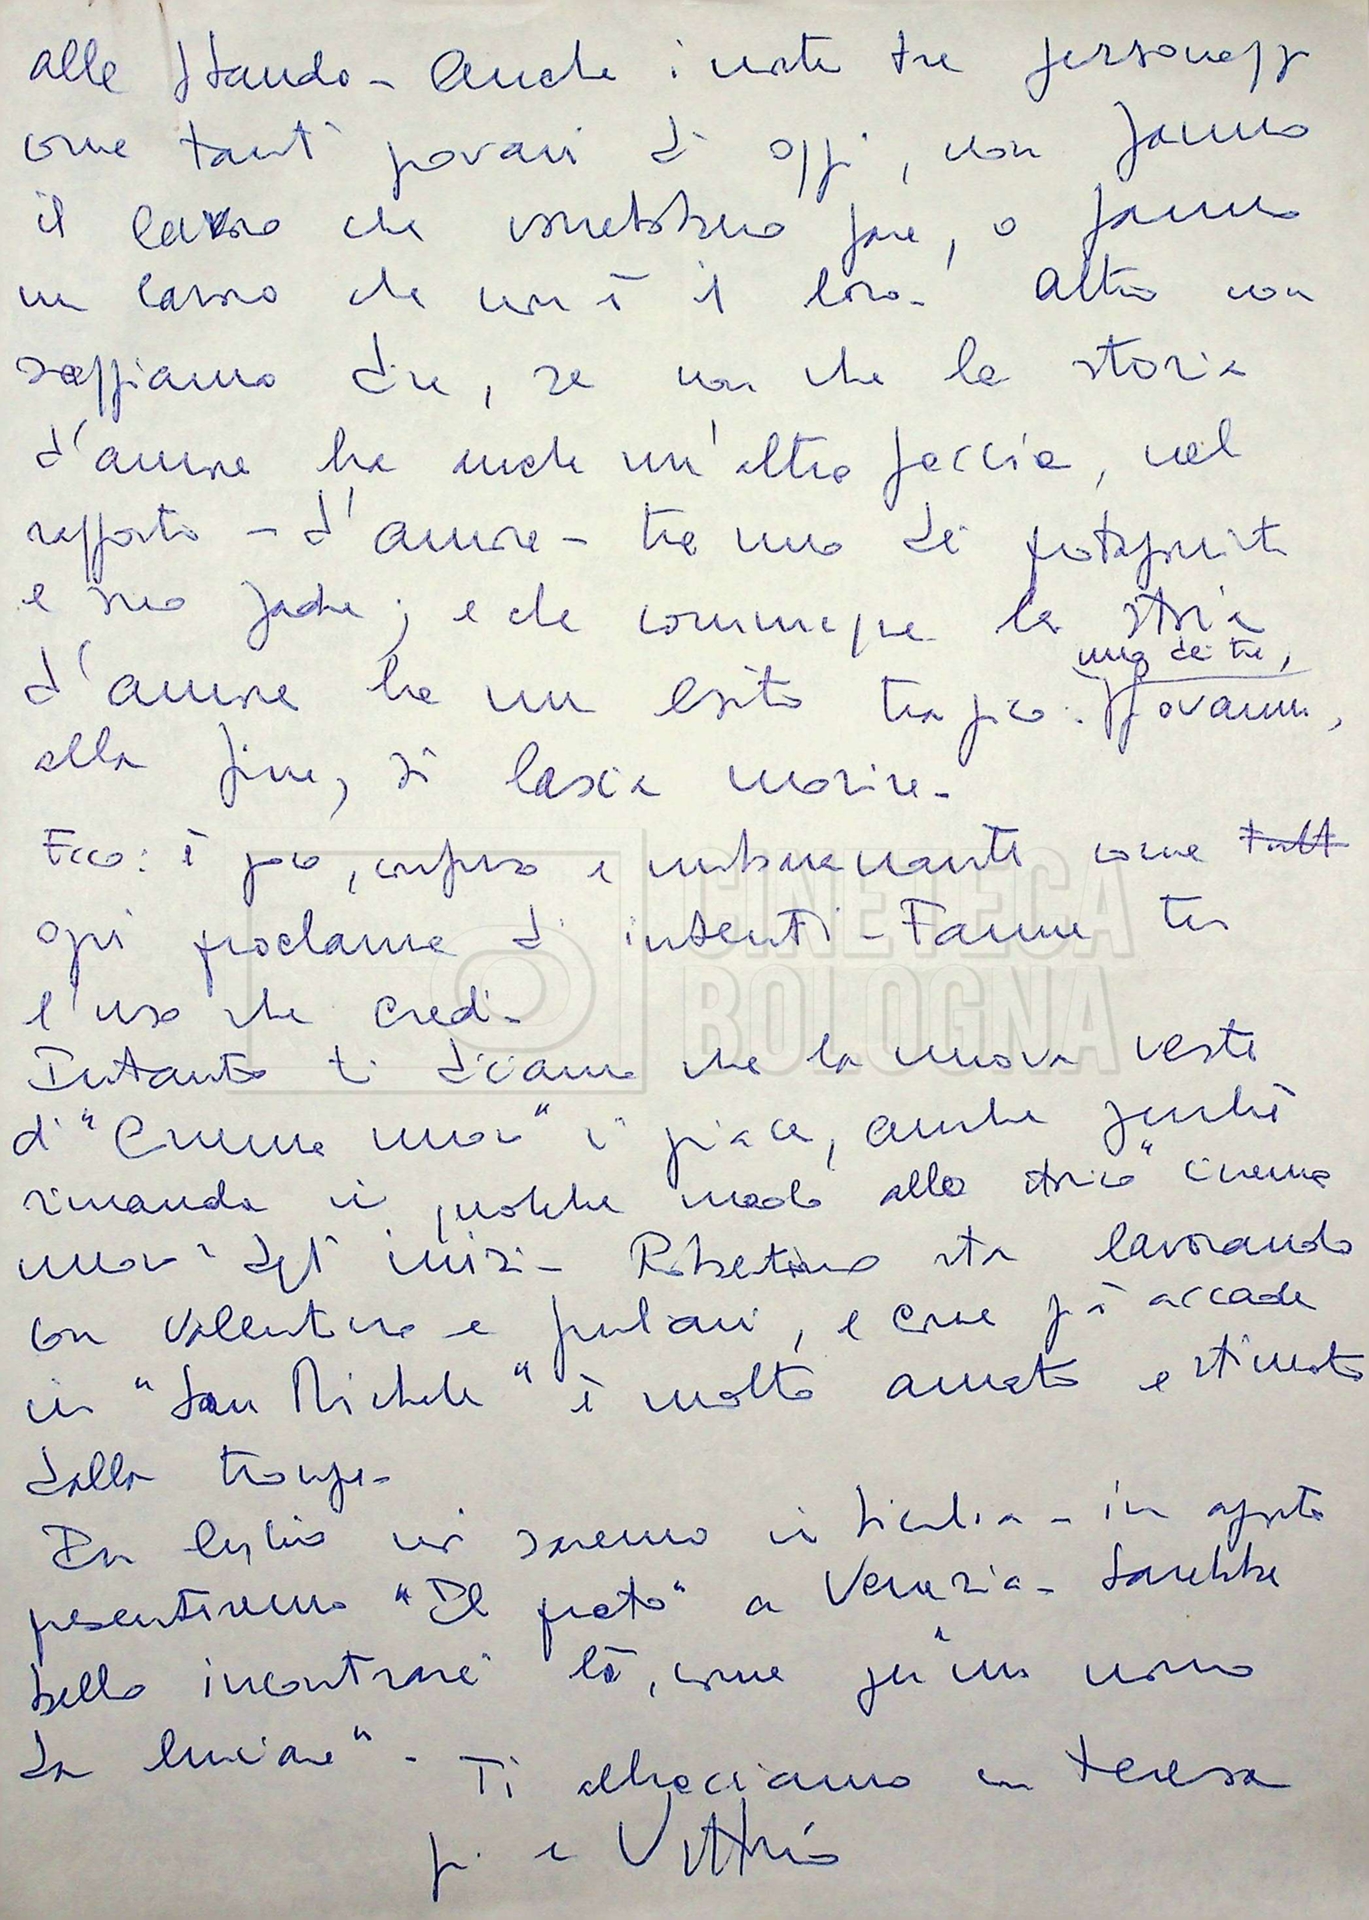 alla Standa - Anche i nostri tre personaggi
come tanti giovani di oggi, non fanno
il lavoro che vorrebbero fare, o fanno
un lavoro che non è il loro - Altro non
sappiamo dire, se non che la storia
d'amore ha anche un'altra faccia, nel
rapporto - d'amore - tra uno dei protagonisti
e suo padre; e che comunque la storia
d'amore ha un esito tragico: Giovanni, uno dei tre,
alla fine, si lascia morire -
Ecco: è poco, confuso e imbarazzante come tutt
ogni proclama di intenti - Fanne tu
l'uso che credi -
Intanto ti diciamo che la nuova veste
di "Cinema nuovo" ci piace, anche perché
rimanda in qualche modo allo storico "cinema
nuovo" degli inizi - Robertino sta lavorando
con Valentino e giuliani, e come già accade
in "San Michele" è molto amato e stimato
dalla troupe -
In luglio noi saremo in Sicilia - in agosto
presentiremo "Il prato" a Venezia - Sarebbe
bello incontrarci là, come "più in
da luciano" - Ti abbracciamo con teresa
p. e Vittorio
CINETECA
BOLOGNA